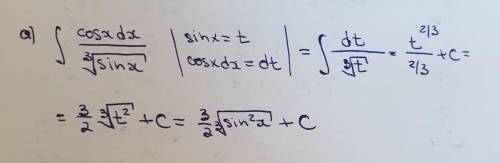 a) ∫ cosxdx / ∛sinx | sinx = t cosxdx = dt | = ∫ dt / ∛t = t^2/3 / 2/3 + C =
= 3/2 ∛t² + C = 3/2 ∛sin²x + C